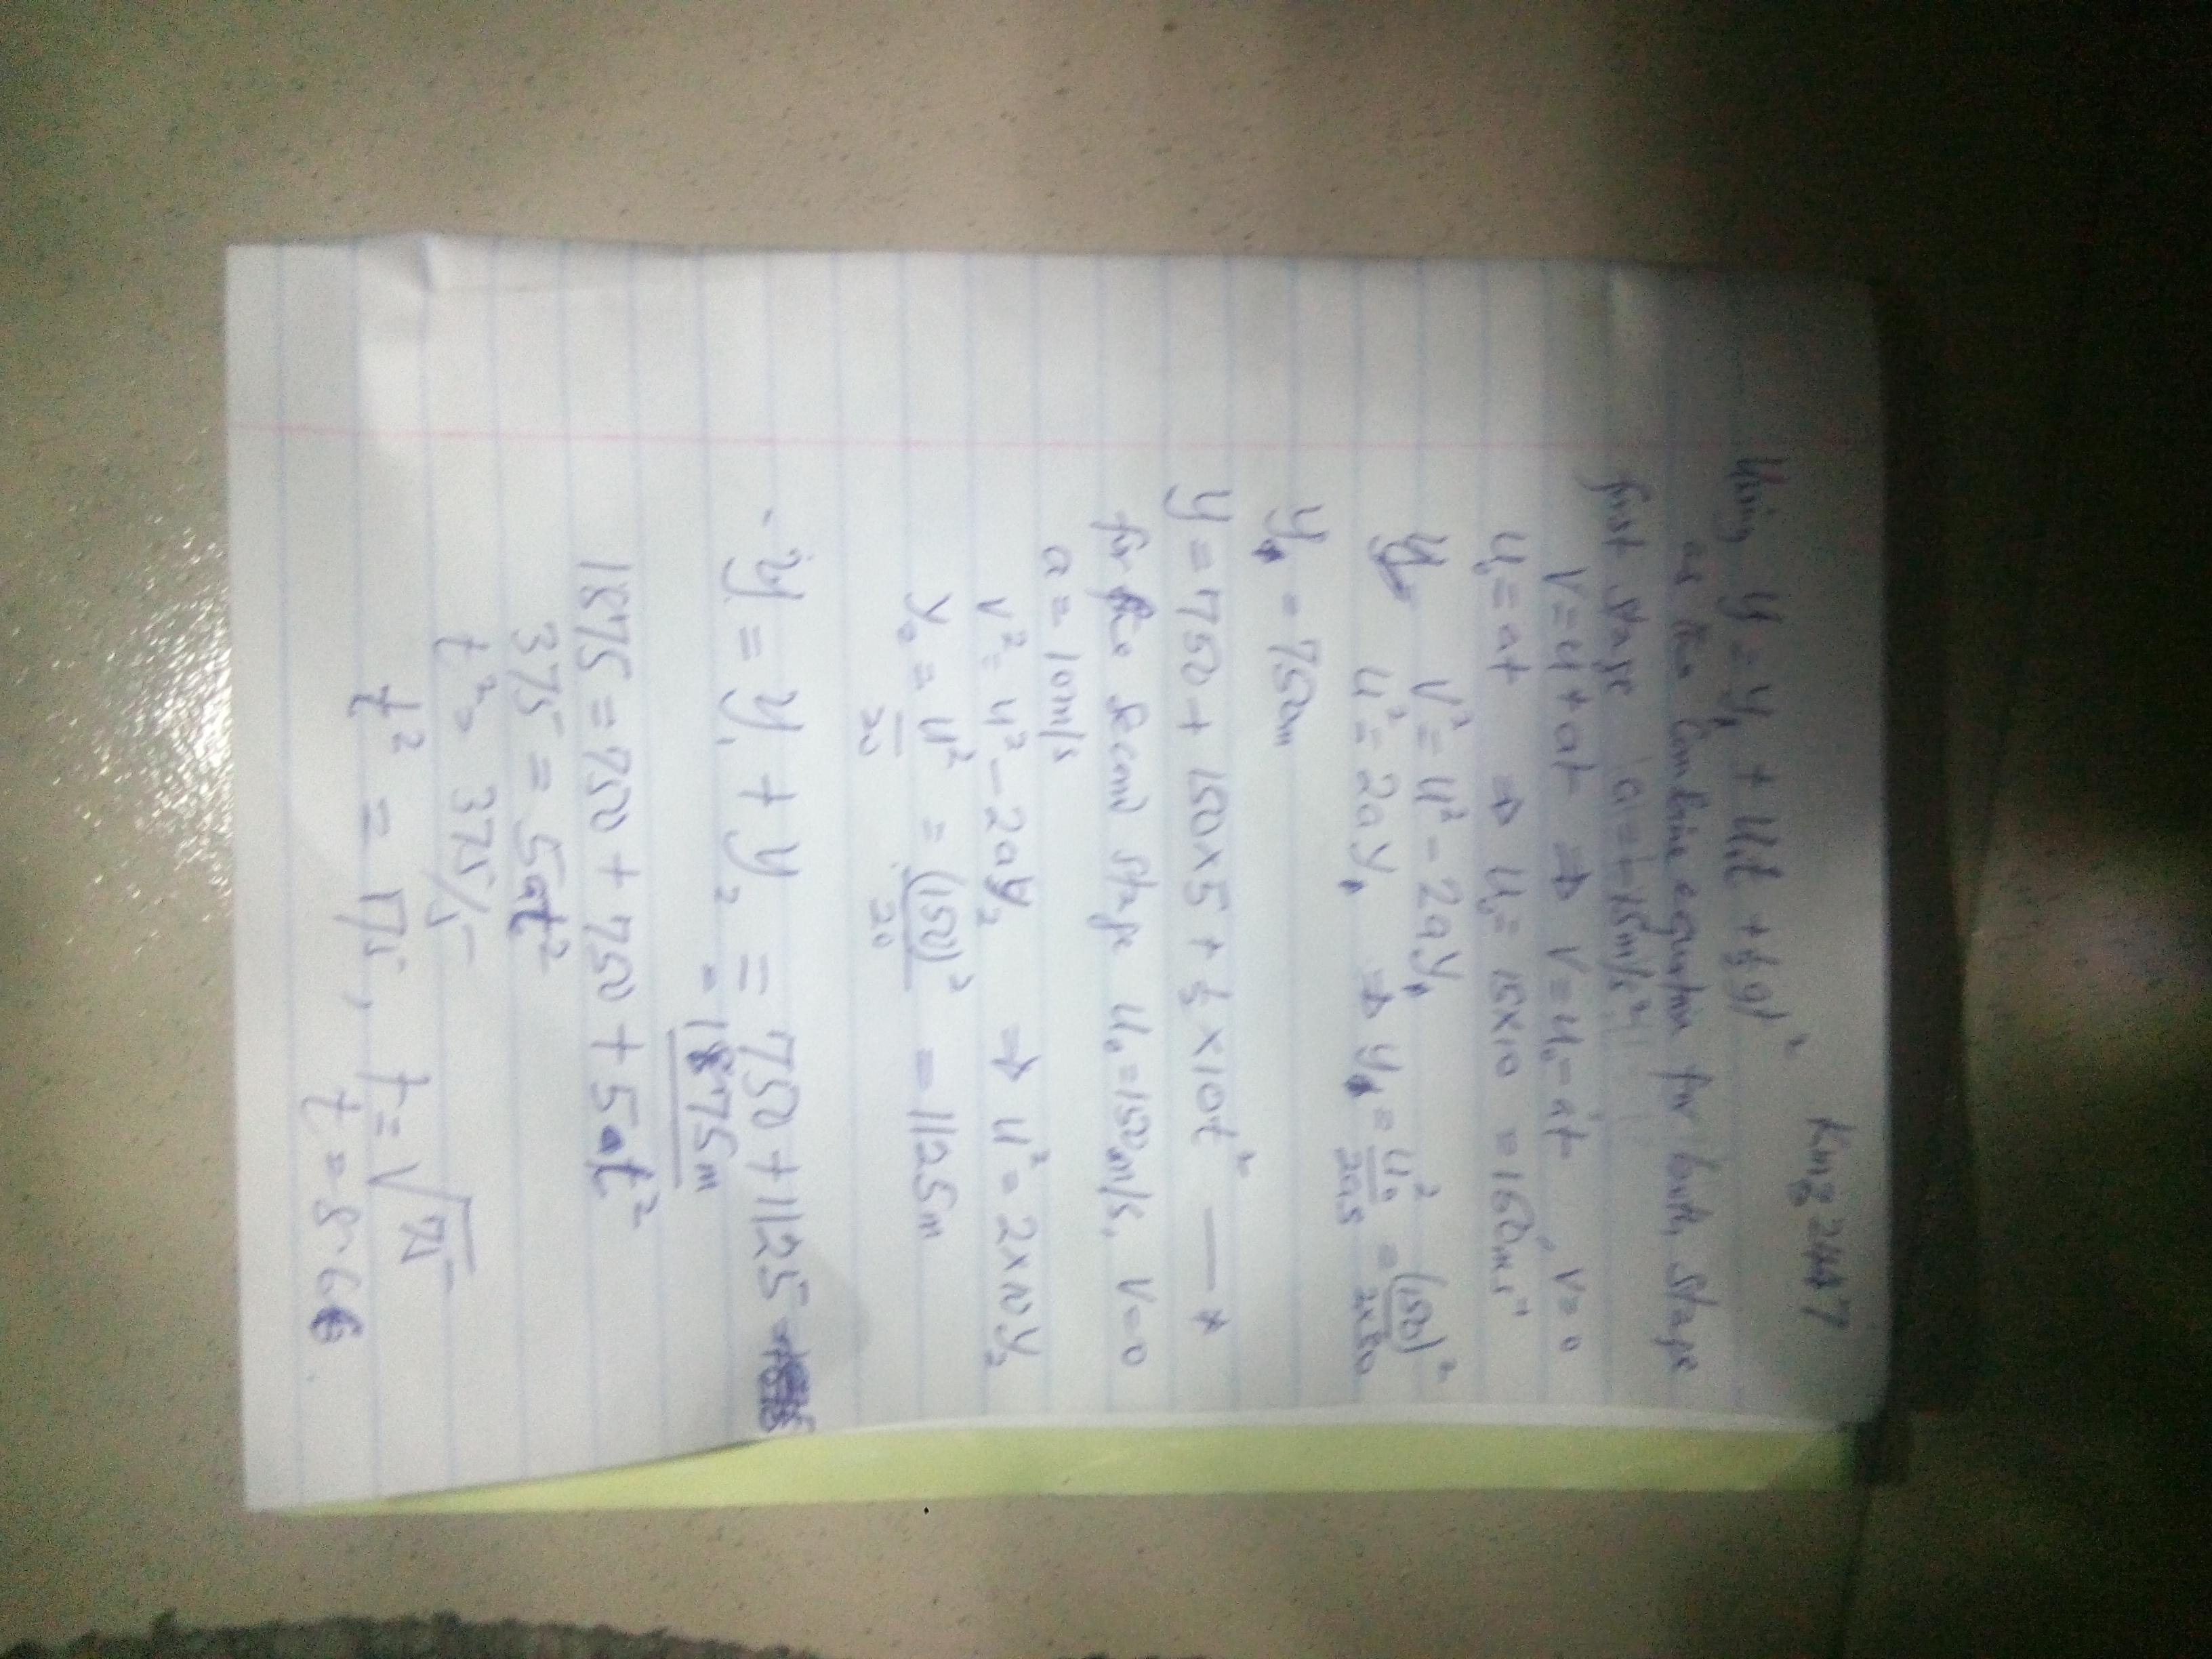 Kmg 2447
Using y = y₁ + u₁t + ½ gt²
as the Combine equation for both stage
first stage a = -15m/s²
V = u + at ⇒ V = u₀ - at, V = 0
u₀ = at ⇒ u₀ = 15×10 = 150ms⁻¹
V² = u² - 2ay₁
u² = 2ay₁ ⇒ y₁ = u₀²/2as = (150)²/
y₁ = 750m
y = 750 + 150×5 + ½×10t² — *
for the second stage u₀ = 150m/s, V = 0
a = 10m/s
V² = u² - 2ay₂ ⇒ u² = 2×10y₂
y₀ = u²/20 = (150)²/20 = 1125m
y = y₁ + y₂ = 750 + 1125
= 1875m
1875 = 750 + 750 + 5at²
375 = 5at²
t² = 375/5
t² = 75, t = √75
t = 8.66